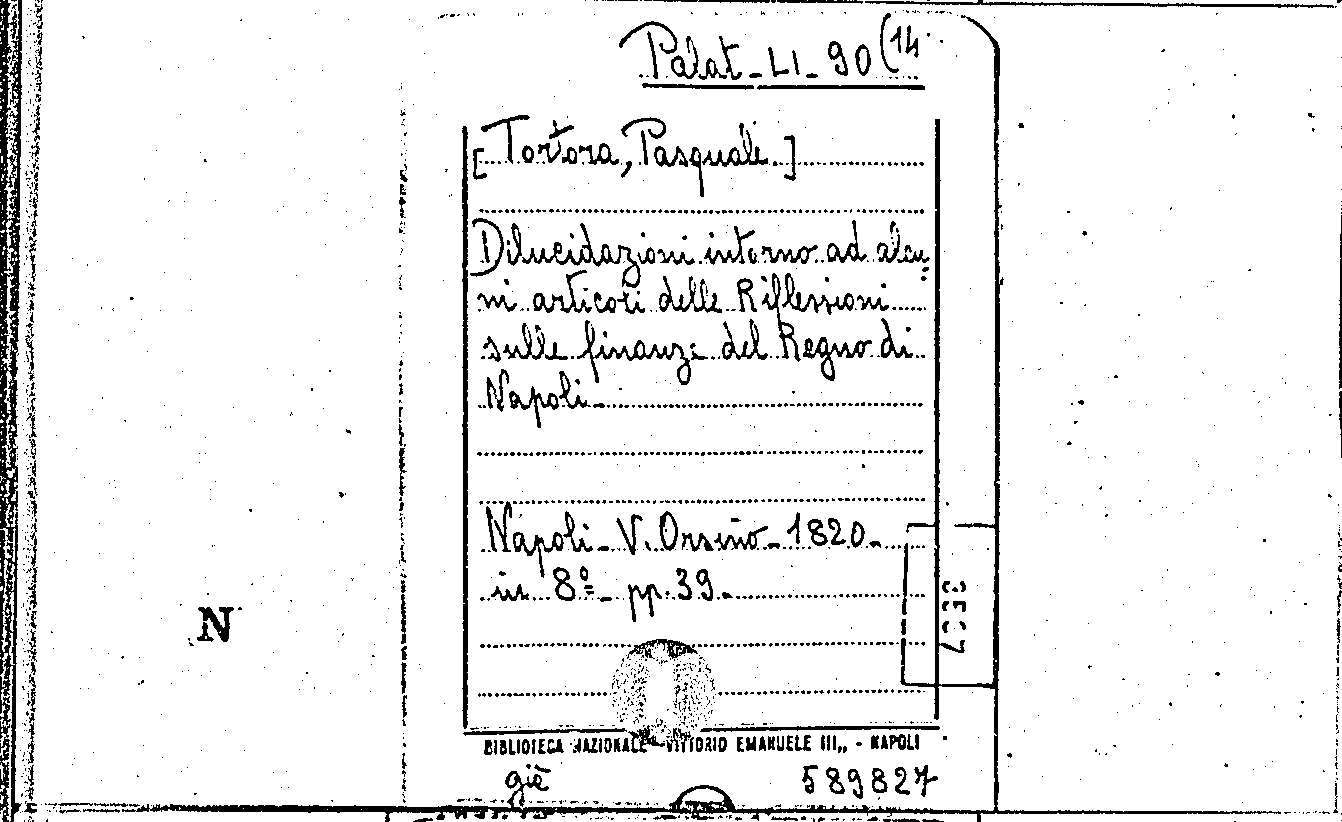 Palat_LI_90(14
[Tortora, Pasquale.]
Dilucidazioni intorno ad alcu=
ni articoli delle Riflessioni
sulle finanze del Regno di
Napoli_
Napoli_V. Orsino_1820_
in 8º_ pp. 39_
N
BIBLIOTECA NAZIONALE "VITTORIO EMANUELE III„ - NAPOLI
già 589827